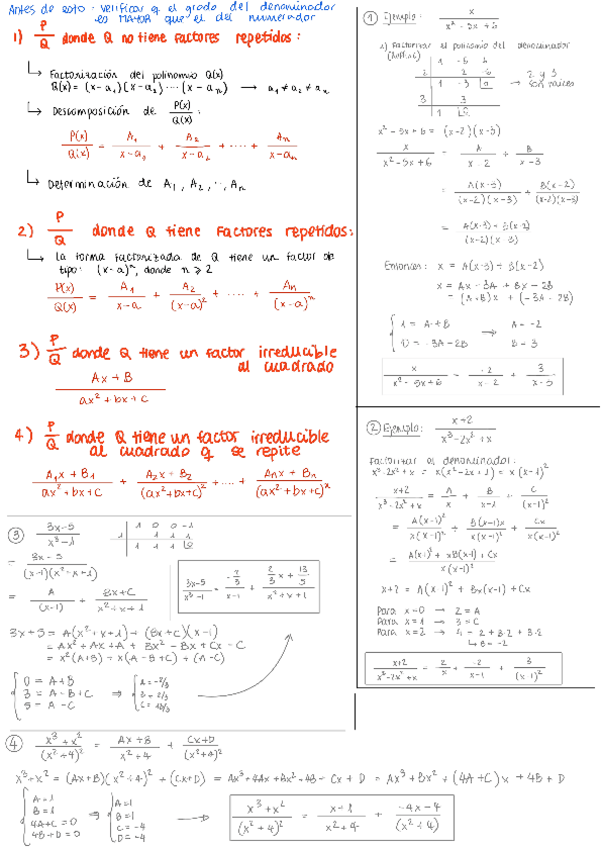 Antes de esto: verificar q el grado del denominador
es MAYOR que el del numerador
1) P/Q donde Q no tiene factores repetidos:
↳ Factorización del polinomio Q(x)
Q(x) = (x-a₁)(x-a₂) ... (x-aₙ) → a₁ ≠ a₂ ≠ aₙ
↳ Descomposición de P(x)/Q(x) :
P(x)/Q(x) = A₁/(x-a₁) + A₂/(x-a₂) + .... + Aₙ/(x-aₙ)
↳ Determinación de A₁, A₂, .., Aₙ
2) P/Q donde Q tiene factores repetidos:
↳ La forma factorizada de Q tiene un factor de
tipo: (x-a)ⁿ, donde n ⩾ 2
P(x)/Q(x) = A₁/(x-a) + A₂/(x-a)² + .... + Aₙ/(x-a)ⁿ
3) P/Q donde Q tiene un factor irreducible
al cuadrado
(Ax + B)/(ax² + bx + c)
4) P/Q donde Q tiene un factor irreducible
al cuadrado q se repite
(A₁x + B₁)/(ax² + bx + c) + (A₂x + B₂)/(ax² + bx + c)² + .... + (Aₙx + Bₙ)/(ax² + bx + c)ⁿ
① Ejemplo: x/(x² - 5x + 6)
1) Factorizar el polinomio del denominador
(Ruffini)
1 -5 6
2 2 -6
1 -3 0
3 3
1 0
→ 2 y 3 son raíces
x² - 5x + 6 = (x-2)(x-3)
x/(x² - 5x + 6) = A/(x-2) + B/(x-3)
= A(x-3)/((x-2)(x-3)) + B(x-2)/((x-2)(x-3))
= (A(x-3) + B(x-2))/((x-2)(x-3))
Entonces: x = A(x-3) + B(x-2)
x = Ax - 3A + Bx - 2B
= (A+B)x + (-3A - 2B)
{ 1 = A + B → A = -2
0 = -3A - 2B B = 3
x/(x² - 5x + 6) = -2/(x-2) + 3/(x-3)
② Ejemplo: (x+2)/(x³ - 2x² + x)
Factorizar el denominador:
x³ - 2x² + x = x(x² - 2x + 1) = x(x-1)²
(x+2)/(x³ - 2x² + x) = A/x + B/(x-1) + C/(x-1)²
= A(x-1)²/(x(x-1)²) + B(x-1)x/(x(x-1)²) + Cx/(x(x-1)²)
= (A(x-1)² + xB(x-1) + Cx)/(x(x-1)²)
x+2 = A(x-1)² + Bx(x-1) + Cx
Para x=0 → 2 = A
Para x=1 → 3 = C
Para x=2 → 4 = 2 + B·2 + 3·2
↳ B = -2
(x+2)/(x³ - 2x² + x) = 2/x + -2/(x-1) + 3/(x-1)²
③ (3x-5)/(x³-1)
1 0 0 -1
1 1 1 1
1 1 1 0
= (3x-5)/((x-1)(x²+x+1))
= A/(x-1) + (Bx+C)/(x²+x+1)
(3x-5)/(x³-1) = (-2/3)/(x-1) + (2/3 x + 13/3)/(x²+x+1)
3x + 5 = A(x²+x+1) + (Bx+C)(x-1)
= Ax² + Ax + A + Bx² - Bx + Cx - C
= x²(A+B) + x(A-B+C) + (A-C)
{ 0 = A+B
3 = A-B+C
5 = A-C
④ (x³+x²)/(x²+4)² = (Ax+B)/(x²+4) + (Cx+D)/(x²+4)²
x³+x² = (Ax+B)(x²+4) + (Cx+D) = Ax³ + 4Ax + Bx² + 4B + Cx + D = Ax³ + Bx² + (4A+C)x + 4B + D
{ A=1 ⇒ { A=1
B=1 B=1
4A+C=0 C=-4
4B+D=0 D=-4
→ (x³+x²)/(x²+4)² = (x+1)/(x²+4) + (-4x-4)/(x²+4)